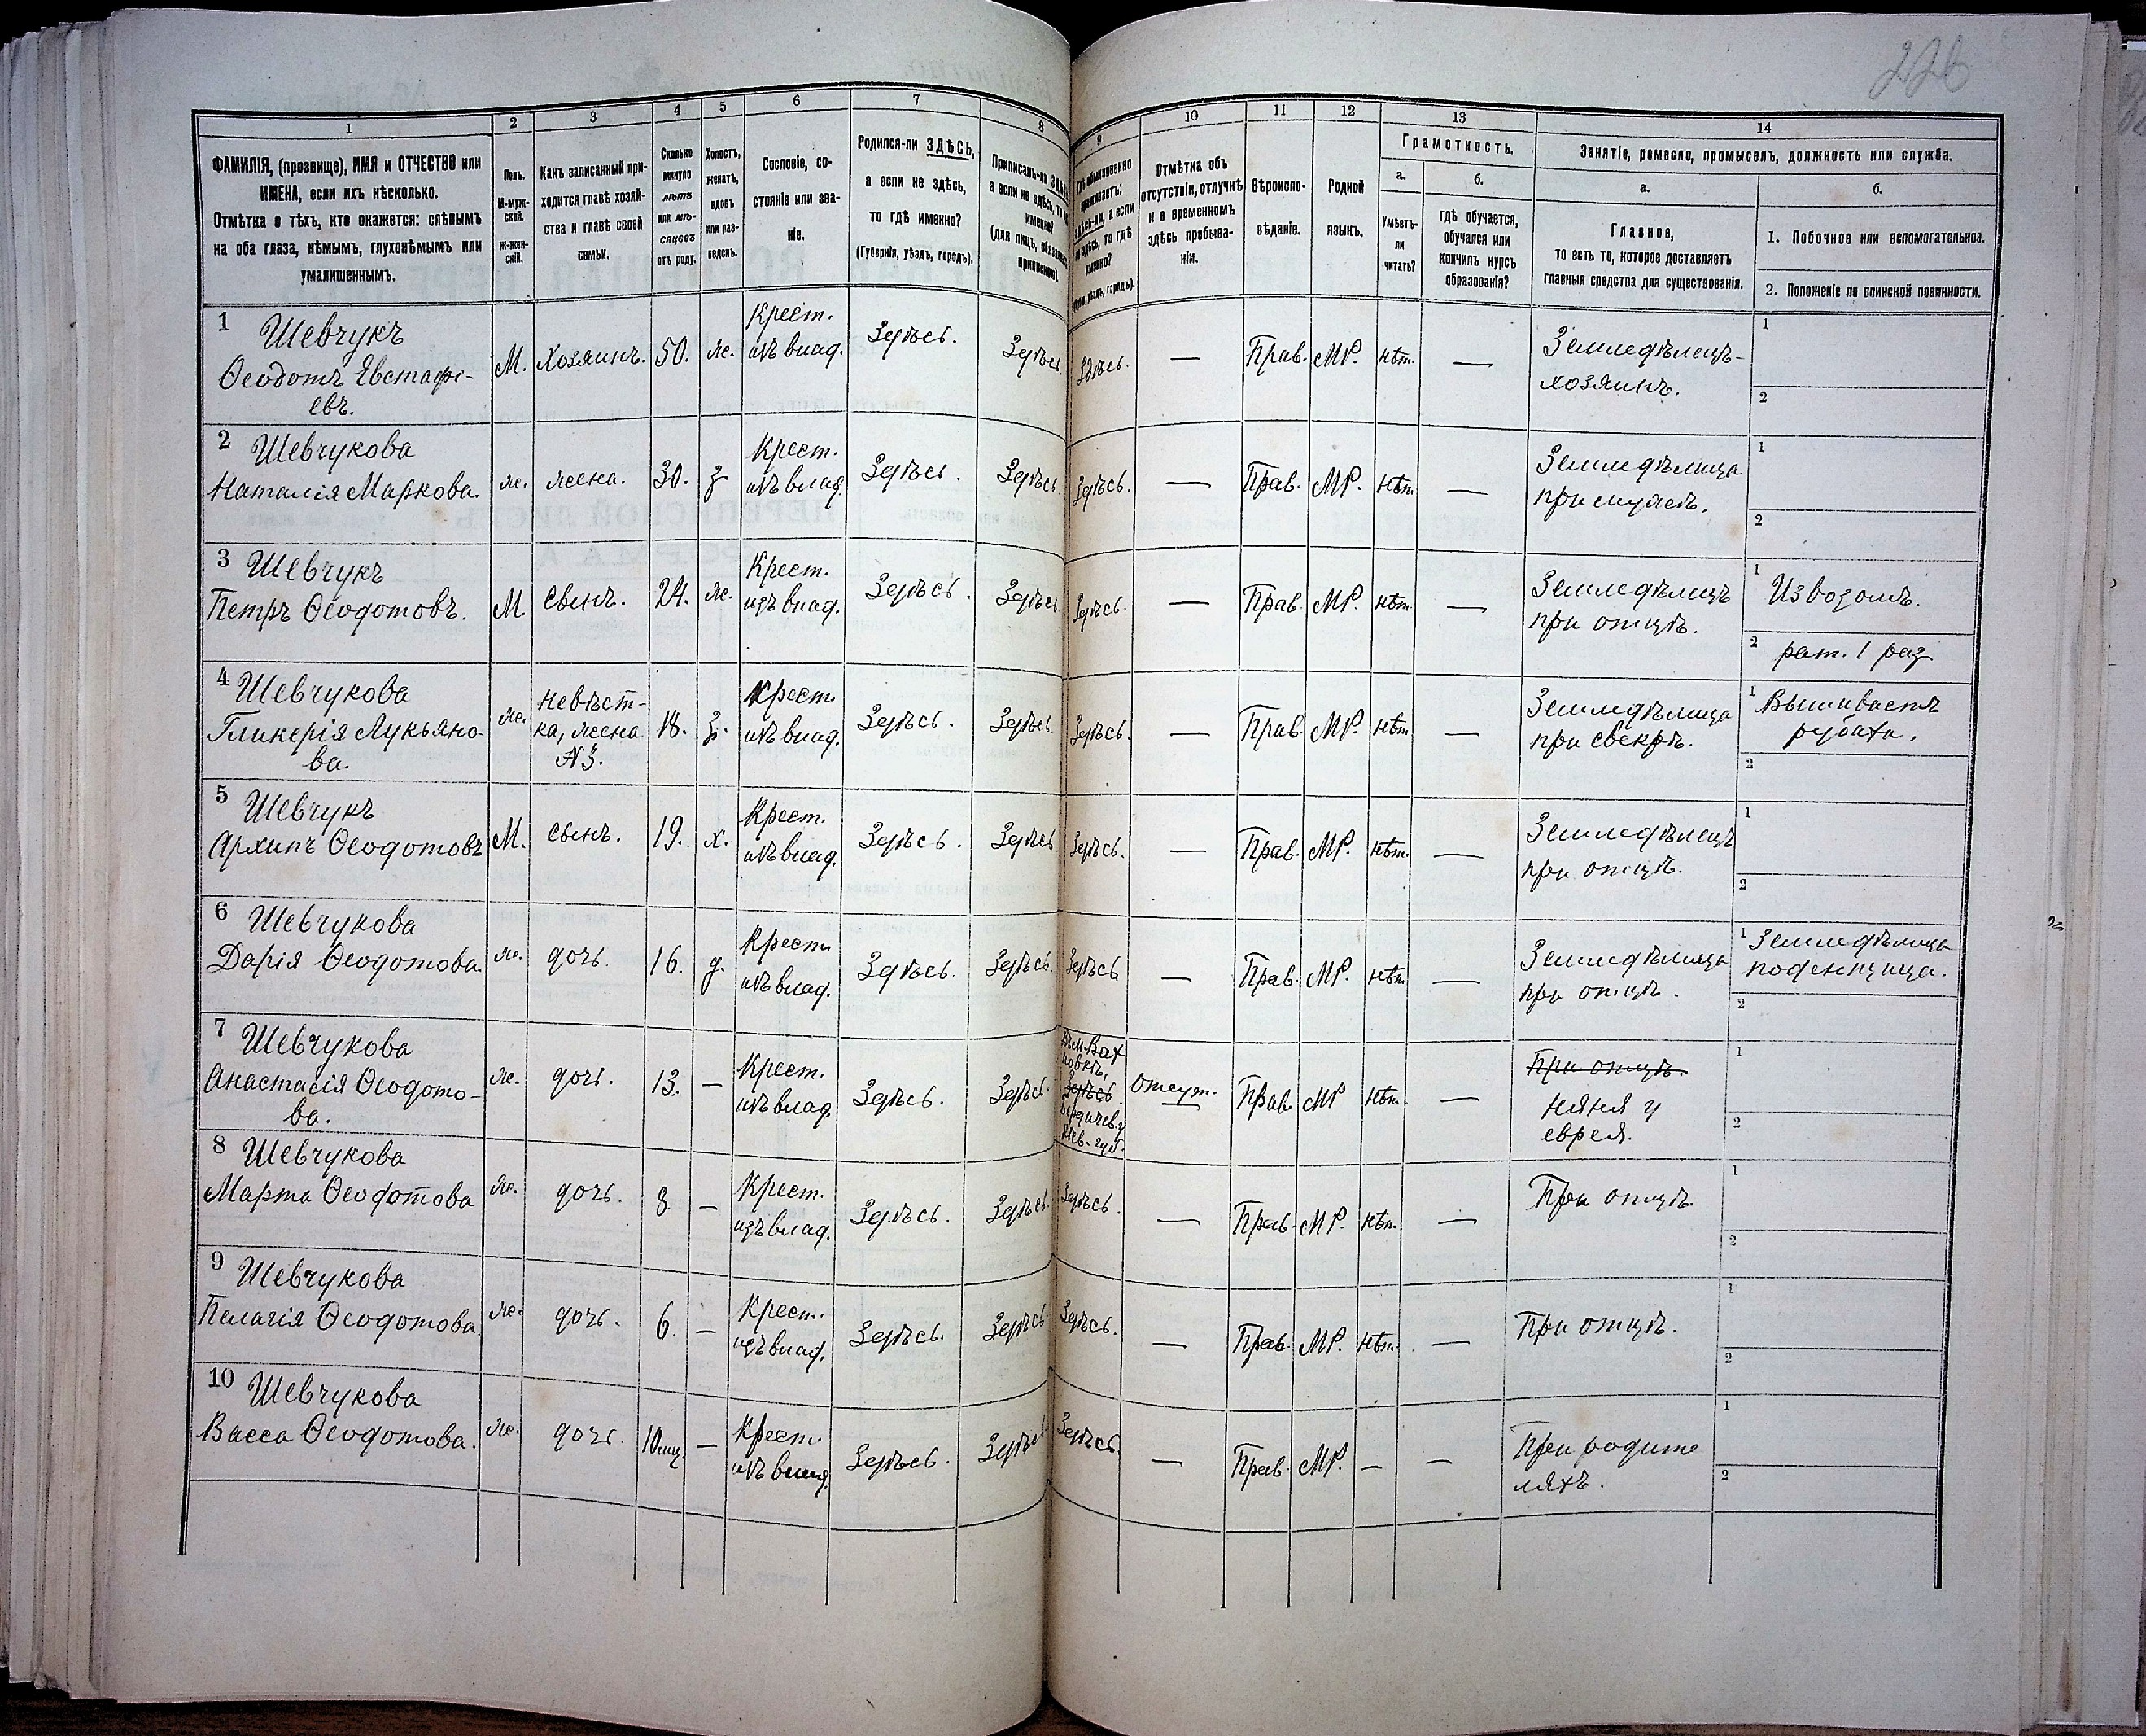 226
1
2
3
4
5
6
7
8
9
10
11
12
13
14
ФАМИЛІЯ, (прозвище), ИМЯ и ОТЧЕСТВО или
ИМЕНА, если ихъ нѣсколько.
Отмѣтка о тѣхъ, кто окажется: слѣпымъ
на оба глаза, нѣмымъ, глухонѣмымъ или
умалишеннымъ.
Полъ.
М-муж-
ской.
Ж-жен-
скій.
Какъ записанный при-
ходится главѣ хозяй-
ства и главѣ своей
семьи.
Сколько
минуло
лѣтъ
или мѣ-
сяцевъ
отъ роду.
Холостъ,
женатъ,
вдовъ
или раз-
веденъ.
Сословіе, со-
стояніе или зва-
ніе.
Родился-ли ЗДѢСЬ,
а если не здѣсь,
то гдѣ именно?
(Губернія, уѣздъ, городъ).
Приписанъ-ли
а если не здѣсь, то
именно?
(для лицъ,
припискою).
обыкновенно
а если
здѣсь, то гдѣ
Отмѣтка объ
отсутствіи, отлучкѣ
и о временномъ
здѣсь пребыва-
ніи.
Вѣроиспо-
вѣданіе.
Родной
языкъ.
Грамотность.
а.
Умѣетъ-
ли
читать?
б.
гдѣ обучается,
обучался или
кончилъ курсъ
образованія?
Занятіе, ремесло, промыселъ, должность или служба.
а.
Главное,
то есть то, которое доставляетъ
главныя средства для существованія.
б.
1. Побочное или вспомогательное.
2. Положеніе по воинской повинности.
1 Шевчукъ
Ѳеодотъ Евстафі-
евъ.
М. хозяинъ. 50. ж. Крест. изъ влад. Здѣсь. Здѣсь. Здѣсь. — Прав. МР. нѣт. —
Земледѣлецъ-
хозяинъ.
1
2
2 Шевчукова
Наталія Маркова
ж. жена. 30. з Крест. изъ влад. Здѣсь. Здѣсь. Здѣсь. — Прав. МР. нѣт. —
Земледѣлица
при мужѣ.
1
2
3 Шевчукъ
Петръ Ѳеодотовъ.
М. сынъ. 24. ж. Крест. изъ влад. Здѣсь. Здѣсь Здѣсь. — Прав. МР. нѣт. —
Земледѣлецъ
при отцѣ.
1 Извозомъ.
2 рат. 1 раз
4 Шевчукова
Гликерія Лукьяно-
ва.
ж. невѣст-
ка, жена
№3.
18. з. Крест. изъ влад. Здѣсь. Здѣсь. Здѣсь. — Прав. МР. нѣт. —
Земледѣлица
при свекрѣ.
1 Вышиваетъ
рубахи.
2
5 Шевчукъ
Архипъ Ѳеодотовъ
М. сынъ. 19. х. Крест. изъ влад. Здѣсь. Здѣсь Здѣсь. — Прав. МР. нѣт. —
Земледѣлецъ
при отцѣ.
1
2
6 Шевчукова
Дарія Ѳеодотова
ж. дочь. 16. д. Крест. изъ влад. Здѣсь. Здѣсь. Здѣсь — Прав. МР. нѣт —
Земледѣлица
при отцѣ.
1 Земледѣлица
поденщица.
2
7 Шевчукова
Анастасія Ѳеодото-
ва.
ж. дочь. 13. — Крест. изъ влад. Здѣсь. Здѣсь.
Здѣсь
Бердичев. у
Кіев. губ.
Отсут. — Прав МР нѣт. —
При отцѣ.
няня у
еврея.
1
2
8 Шевчукова
Марта Ѳеодотова
ж. дочь. 8. — Крест. изъ влад. Здѣсь. Здѣсь. Здѣсь. — Прав. МР. нѣт. —
При отцѣ.
1
2
9 Шевчукова
Пелагія Ѳеодотова.
ж. дочь. 6. — Крест. изъ влад. Здѣсь. Здѣсь Здѣсь. — Прав. МР. нѣт. —
При отцѣ.
1
2
10 Шевчукова
Васса Ѳеодотова.
ж. дочь. 10 мц. — Крест. изъ влад. Здѣсь. Здѣсь Здѣсь. — Прав. МР. — —
При родите
ляхъ.
1
2